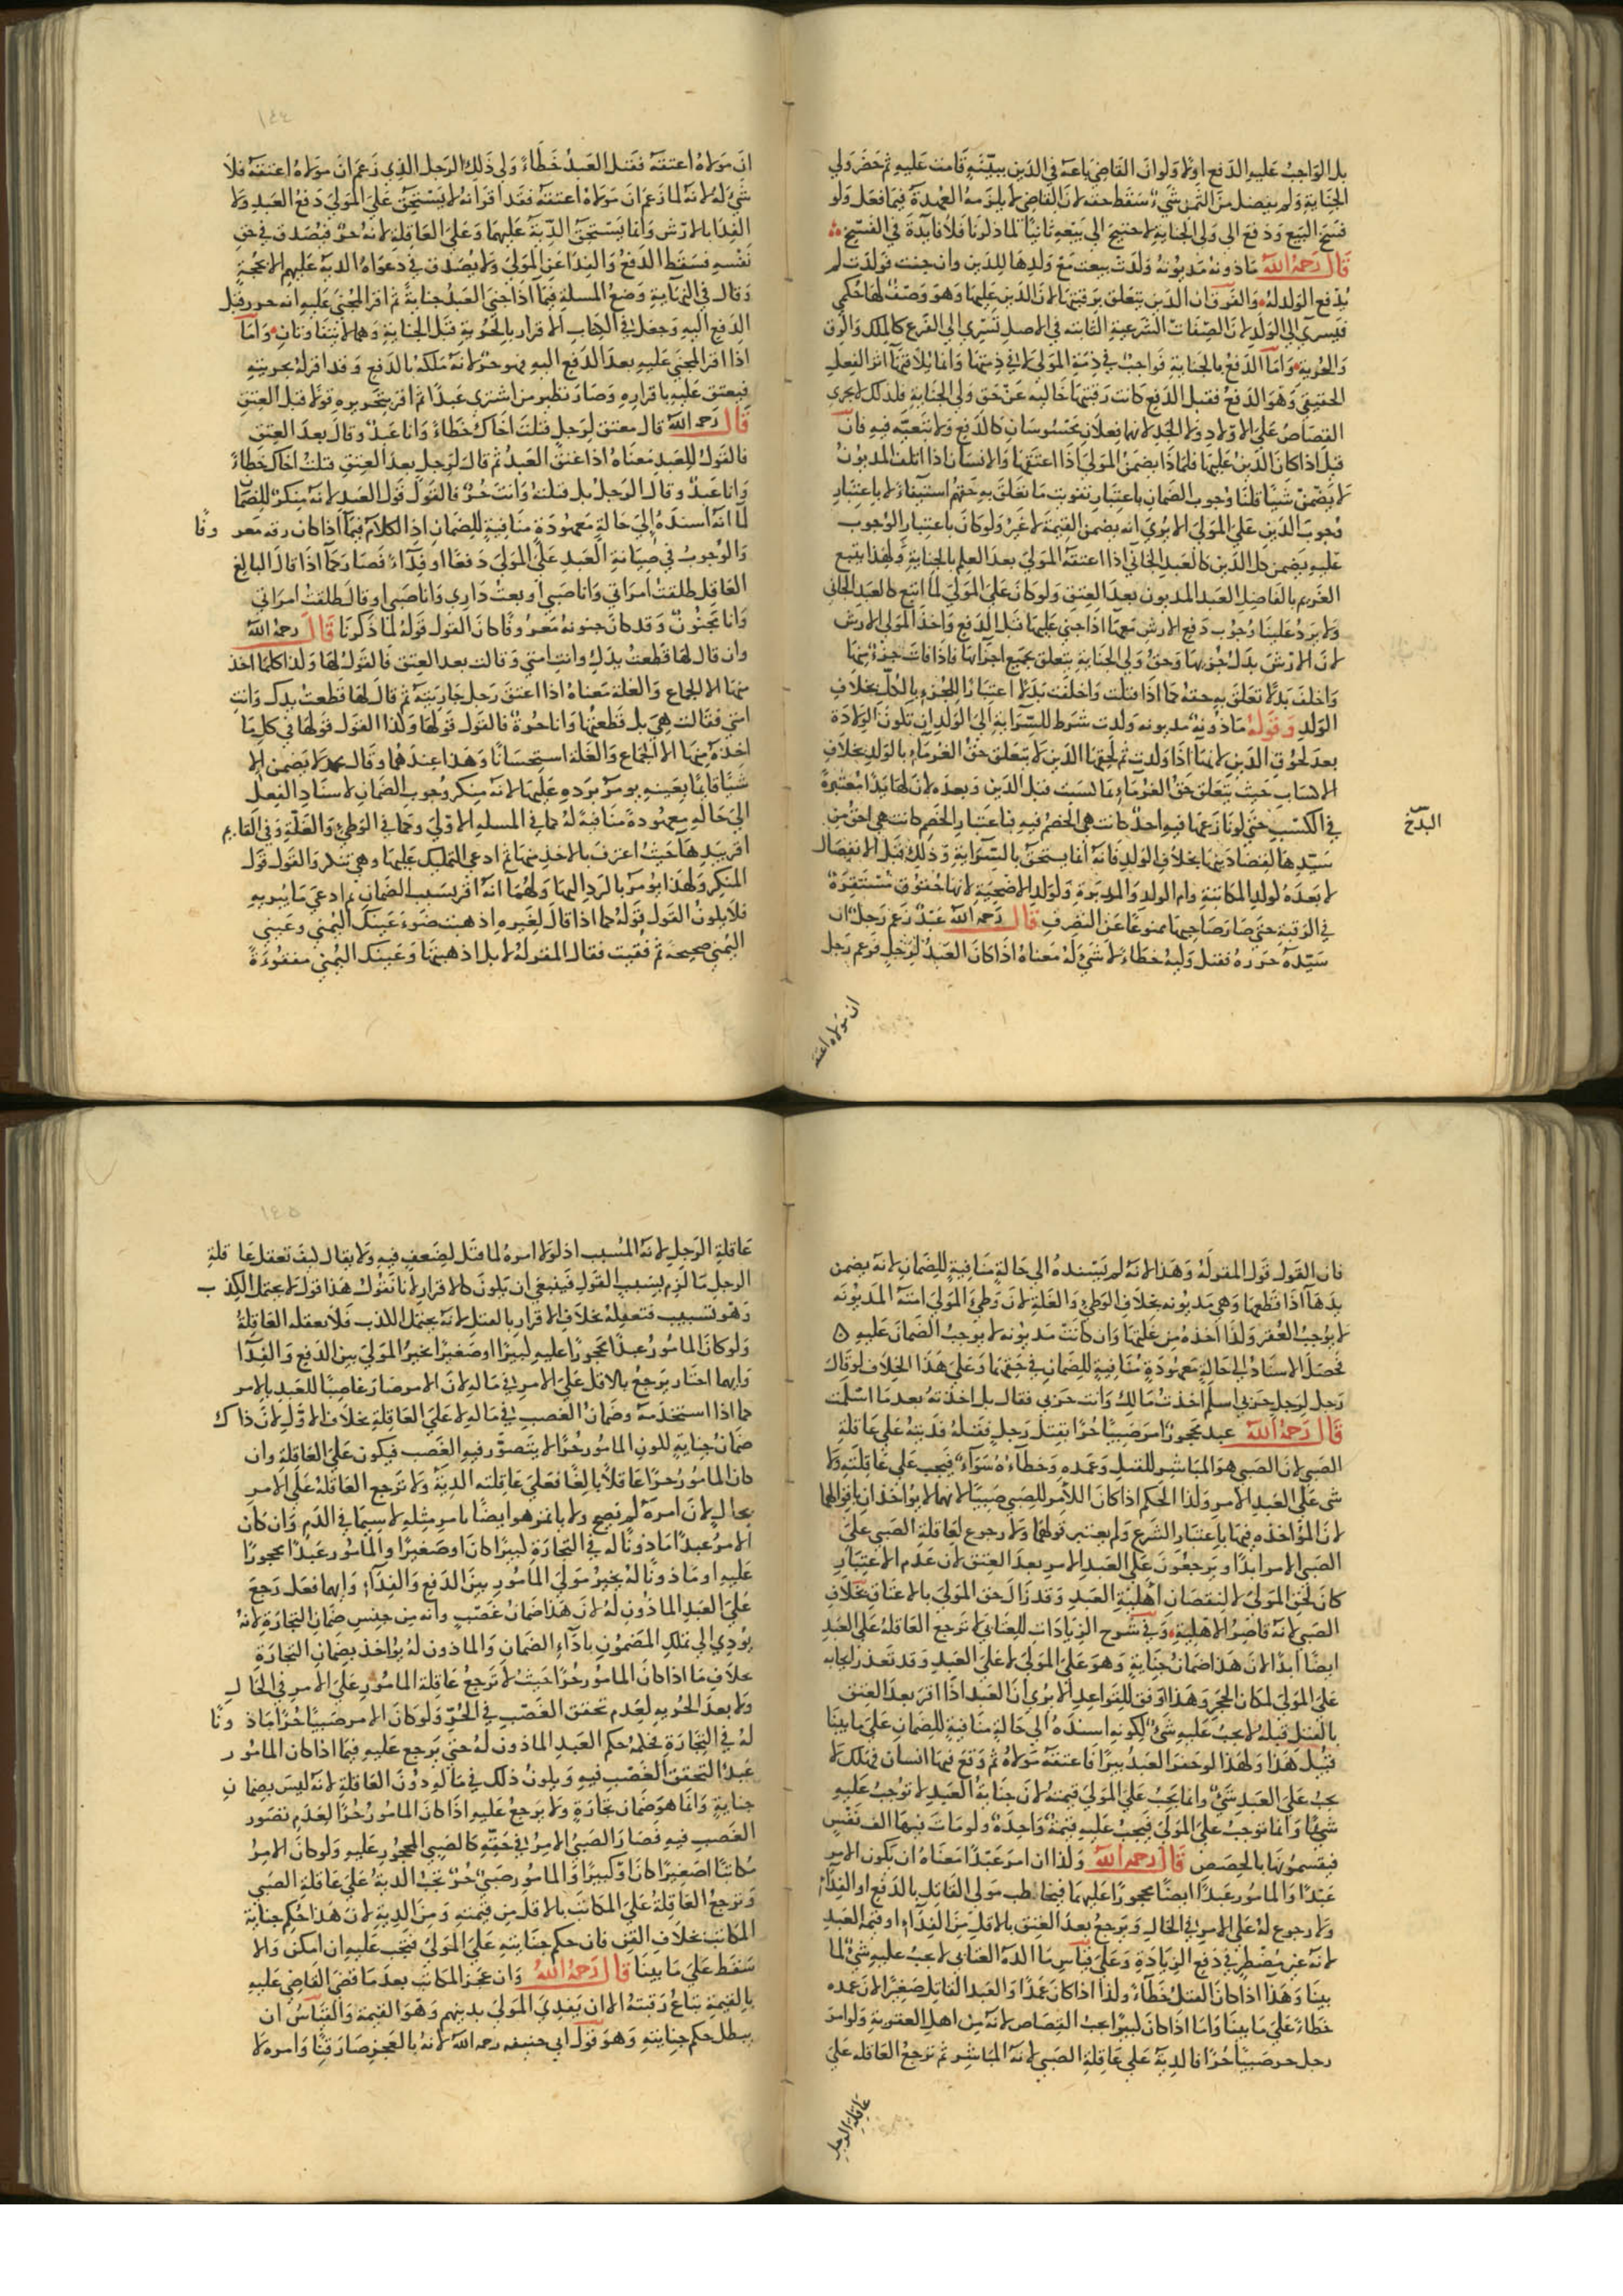 بل الواجب عليه الدفع اولا ولو ان القاضي باعه في الدين ببينة قامت عليه ثم حضر ولي
الجناية ولم يفضل من الثمن شيء سقط حقه لان القاضي لا يلزمه العهدة فيما فعل ولو
فسخ البيع ودفع الى ولي الجناية لاحتيج الى بيعه ثانيا لما ذكرنا فلا فايدة في الفسخ
قال رحمه الله ماذونة مديونة ولدت بيعت مع ولدها للدين وان جنت فولدت لم
يدفع الولد له والفرق ان الدين يتعلق برقبتها لان الدين عليها وهو وصف لها حكمي
فيسري الى الولد لان الصفات الشرعية الثابتة في الاصل تسري الى الفرع كالملك والرق
والحرية واما الدفع بالجناية فواجب في ذمة المولى لا في ذمتها وانما يلاقيها اثر الفعل
الحقيقي وهو الدفع فقبل الدفع كانت رقبتها خالية عن حق ولي الجناية فلذلك لا يجري
القصاص على الاولاد ولا الحد لانهما فعلان محسوسان كالدفع ولا تبعية فيه فان
قيل اذا كان الدين عليها فلماذا يضمن المولى اذا اعتقها والانسان اذا اتلف المديون
لا يضمن شيا قلنا وجوب الضمان باعتبار تفويت ما تعلق به حقهم استيفاء لا باعتبار
وجوب الدين على المولى الا يرى انه يضمن القيمة لا غير ولو كان باعتبار الوجوب
عليه يضمن كل الدين كالعبد الجاني اذا اعتقه المولى بعد العلم بالجناية ولهذا يتبع
الغريم بالفاضل العبد المديون بعد العتق ولو كان على المولى لما اتبع كالعبد الجاني
ولا يرد علينا وجوب دفع الارش معها اذا جني عليها قبل الدفع واخذ المولى الارش
لان الارش بدل جزيها وحق ولي الجناية يتعلق بجميع اجزائها فاذا فات جزء منها
واخلف بدلا تعلق به حقه كما اذا قتلت واخلفت بدلا اعتبارا للجزء بالكل بخلاف
الولد وقوله ماذونة مديونة ولدت شرط للسراية الى الولد ان تكون الولادة
بعد لحوق الدين لانها اذا ولدت ثم لحقها الدين لا يتعلق حق الغرماء بالولد بخلاف
الاكساب حيث يتعلق حق الغرماء بما كسبت قبل الدين وبعده لان لها يدا معتبرة
في الكسب حتى لو نازعها فيه احد كانت هي الخصم فيه فباعتبار الخصم كانت هي احق من
سيدها لقضا دينها بخلاف الولد فانه انما يستحق بالسراية وذلك قبل الانفصال
لا بعده لولد المكاتبة وام الولد والمدبرة وولد الاضحية لانها حقوق مستقرة
في الرقبة حتى صار صاحبها ممنوعا عن التصرف قال رحمه الله عبد زعم رجل ان
سيده حرره فقتل وليه خطاء لا شي له معناه اذا كان العبد لرجل فزعم رجل
البدخ
ان مولاه اعتقه
١٤٤
ان مولاه اعتقه فقتل العبد خطاء ولي ذلك الرجل الذي زعم ان مولاه اعتقه فلا
شي له لانه لما زعم ان مولاه اعتقه فقد اقر انه لا يستحق على المولى دفع العبد ولا
الفدا بالارش وانما يستحق الدية عليهما وعلى العاقلة لانه حر فيصدق في حق
نفسه فسقط الدفع والفدا عن المولى ولا يصدق في دعواه الدية عليهم الا بحجة
وقال في النهاية وضع المسلة فيما اذا جنى العبد جناية ثم اقر المجني عليه انه حر قبل
الدفع اليه وجعل في الكتاب الاقرار بالحرية قبل الجناية وهما لا يتفاوتان واما
اذا اقر المجني عليه بعد الدفع اليه فهو حر لانه ملكه بالدفع وقد اقر له بحريته
فيعتق عليه باقراره وصار نظير من اشترى عبدا ثم اقر بتحريره قولا قبل العتق
قال رحمه الله قال معتق لرجل قتلت اخاك خطاء وانا عبد وقال بعد العتق
فالقول للعبد معناه اذا عتق العبد ثم قال لرجل بعد العتق قتلت اخاك خطاء
وانا عبد وقال الرجل بل قتلته وانت حر فالقول قول العبد لانه منكر للضمان
لما انه اسنده الى حالة معهودة منافية للضمان اذ الكلام فيما اذا كان رقه معروفا
والوجوب في جناية العبد على المولى دفعا او فداء فصار كما اذا قال البالغ
العاقل طلقت امراتي وانا صبي او بعت داري وانا صبي او قال طلقت امراتي
وانا مجنون وقد كان جنونه معروفا كان القول قوله لما ذكرنا قال رحمه الله
وان قال لها قطعت يدك وانت امتي وقالت بعد العتق فالقول لها ولذا كلما اخذ
منها الا الجماع والغلة معناه اذا اعتق رجل جاريته ثم قال لها قطعت يدك وانت
امتي فقالت هي بل قطعتها وانا حرة فالقول قولها ولذا القول قولها في كل ما
اخذه منها الا الجماع والغلة استحسانا وهذا عندهما وقال محمد لا يضمن الا
شيا قايما بعينه يومر برده عليها لانه منكر وجوب الضمان لاسناد الفعل
الى حالة معهودة منافية له كما في المسلة الاولى وكما في الوطي والغلة وفي القايم
اقر بيدها حيث اعترف بالاخذ منها ثم ادعى التمليك عليها وهي تنكر والقول قول
المنكر ولهذا يومر بالرد اليها ولهما انه اقر بسبب الضمان ثم ادعى ما يبريه
فلا يكون القول قوله كما اذا قال لغيره اذهبت ضوء عينك اليمنى وعيني
اليمنى صحيحة ثم فقيت فقال المقر له لا بل اذهبتها وعينك اليمنى مفقوءة
فان القول قول المقر له وهذا لانه لم يسنده الى حالة منافية للضمان لانه يضمن
يدها اذا قطعها وهي مديونة بخلاف الوطي والغلة لان وطي المولى امته المديونة
لا يوجب العقر ولذا اخذه من غلتها وان كانت مديونة لا يوجب الضمان عليه
فحصل الاسناد الى حالة معهودة منافية للضمان في حقهما وعلى هذا الخلاف لو قال
رجل لرجل حربي اسلم اخذت مالك وانت حربي فقال بل اخذته بعد ما اسلمت
قال رحمه الله عبد محجور امر صبيا حرا بقتل رجل فقتله فديته على عاقلة
الصبي لان الصبي هو المباشر للقتل وعمده وخطاءه سواء فيجب على عاقلته ولا
شي على العبد الامر ولذا الحكم اذا كان الآمر للصبي صبيا لانهما لا يؤاخذان باقوالهما
لان المؤاخذه فيها باعتبار الشرع ولم يعتبر قولهما ولا رجوع لعاقلة الصبي على
الصبي الامر ابدا ويرجعون على العبد الامر بعد العتق لان عدم الاعتبار
كان لحق المولى لا لنقصان اهلية العبد وقد زال حق المولى بالاعتاق بخلاف
الصبي لانه قاصر الاهلية وفي شرح الزيادات للعتابي لا ترجع العاقلة على العبد
ايضا ابدا لان هذا ضمان جناية وهو على المولى لا على العبد وقد تعذر ايجابه
على المولى لمكان الحجر وهذا اوفق للقواعد الا يرى ان العبد اذا اقر بعد العتق
بالقتل قبله لا يجب عليه شي لكونه اسنده الى حالة منافية للضمان على ما بينا
قبل هذا ولهذا لو حفر العبد بيرا فاعتقه مولاه ثم وقع فيها انسان فهلك لا
يجب على العبد شي وانما يجب على المولى قيمته لان جناية العبد لا توجب عليه
شيا وانما توجب على المولى فيجب عليه قيمة واحدة ولو مات فيها الف نفس
فيقسمونها بالحصص قال رحمه الله ولذا ان امر عبدا معناه ان يكون الامر
عبدا والمامور عبدا ايضا محجورا عليهما فيخاطب مولى القاتل بالدفع او الفداء
ولا رجوع له على الامر في الحال ويرجع بعد العتق بالاقل من الفداء وقيمة العبد
لانه غير مضطر في دفع الزيادة وعلى قياس ما العتابي لا يجب عليه شي لما
بينا وهذا اذا كان القتل خطاء ولذا اذا كان عمدا والعبد القاتل صغيرا لان عمده
خطاء على ما بينا واما اذا كان كبيرا يجب القصاص لانه من اهل العقوبة ولو امر
رجل حر صبيا حرا فالدية على عاقلة الصبي لانه المباشر ثم ترجع العاقلة على
عاقلة الرجل
١٤٥
عاقلة الرجل لانه المسبب اذ لولا امره لما قتل لضعف فيه ولا يقال كيف تعقل عاقلة
الرجل ما لزم بسبب القول فينبغي ان يكون كالاقرار لانا نقول هذا قول لا يحتمل الكذب
وهو تسبيب فتعقله بخلاف الاقرار بالقتل لانه يحتمل الكذب فلا تعقله العاقلة
ولو كان المامور عبدا محجورا عليه كبيرا او صغيرا يخير المولى بين الدفع والفدا
وايهما اختار يرجع بالاقل على الامر في ماله لان الامر صار غاصبا للعبد بالامر
كما اذا استخدمه وضمان الغصب في ماله لا على العاقلة بخلاف الاول لان ذاك
ضمان جناية لكون المامور حرا لا يتصور فيه الغصب فيكون على العاقلة وان
كان المامور حرا عاقلا بالغا فعلى عاقلته الدية ولا ترجع العاقلة على الامر
بحال لان امره لم يصح ولا ياتمر هو ايضا بامر مثله لا سيما في الدم وان كان
الامر عبدا ماذونا له في التجارة كبيرا كان او صغيرا والمامور عبدا محجورا
عليه او ماذونا له يخير مولى المامور بين الدفع والفداء وايهما فعل رجع
على العبد الماذون له لان هذا ضمان غصب وانه من جنس ضمان التجارة لانه
يؤدي الى تملك المضمون باداء الضمان والماذون له يؤاخذ بضمان التجارة
بخلاف ما اذا كان المامور حرا حيث لا ترجع عاقلة المامور على الامر في الحال
ولا بعد الحرية لعدم تحقق الغصب في الحر ولو كان الامر صبيا حرا ماذونا
له في التجارة فحكمه حكم العبد الماذون له حتى يرجع عليه فيما اذا كان المامور
عبدا لتحقق الغصب فيه ويكون ذلك في ماله دون العاقلة لانه ليس بضمان
جناية وانما هو ضمان تجارة ولا يرجع عليه اذا كان المامور حرا لعدم تصور
الغصب فيه فصار الصبي الامر في حقه كالصبي المحجور عليه ولو كان الامر
مكاتبا صغيرا كان او كبيرا والمامور صبي حر تجب الدية على عاقلة الصبي
وترجع العاقلة على المكاتب بالاقل من قيمته ومن الدية لان هذا حكم جناية
المكاتب بخلاف القن فان حكم جنايته على المولى فتجب عليه ان امكن والا
سقط على ما بينا قال رحمه الله وان عجز المكاتب بعد ما قضى القاضي عليه
بالقيمة تباع رقبته الا ان يفدي المولى بدينهم وهو القيمة والقياس ان
يبطل حكم جنايته وهو قول ابي حنيفه رحمه الله لانه بالعجز صار قنا وامره لا